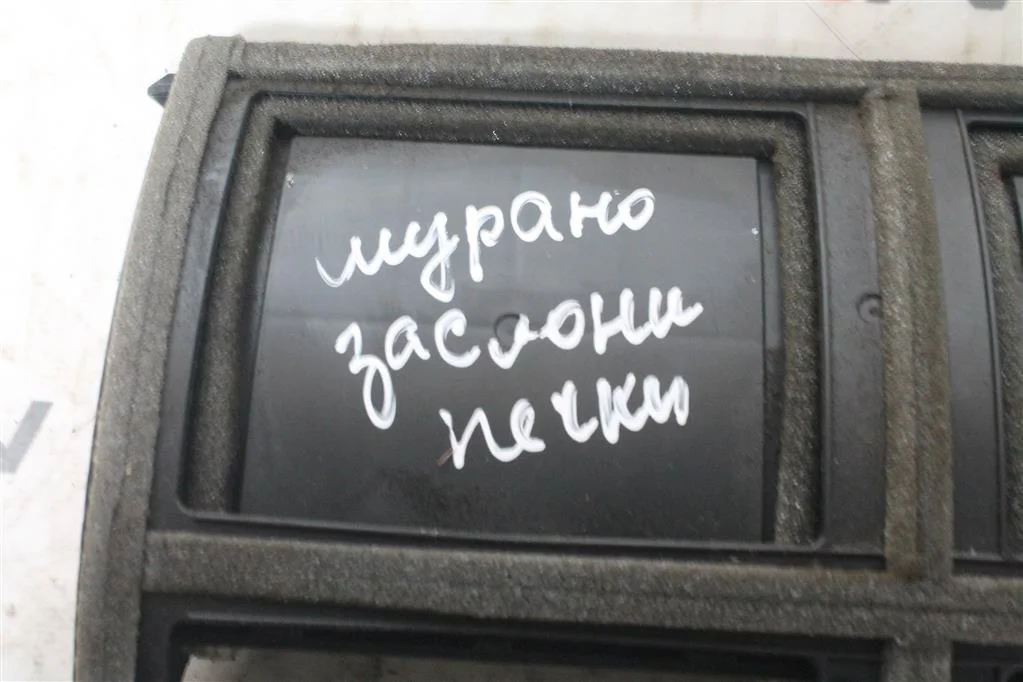 мурано
заслони
печки